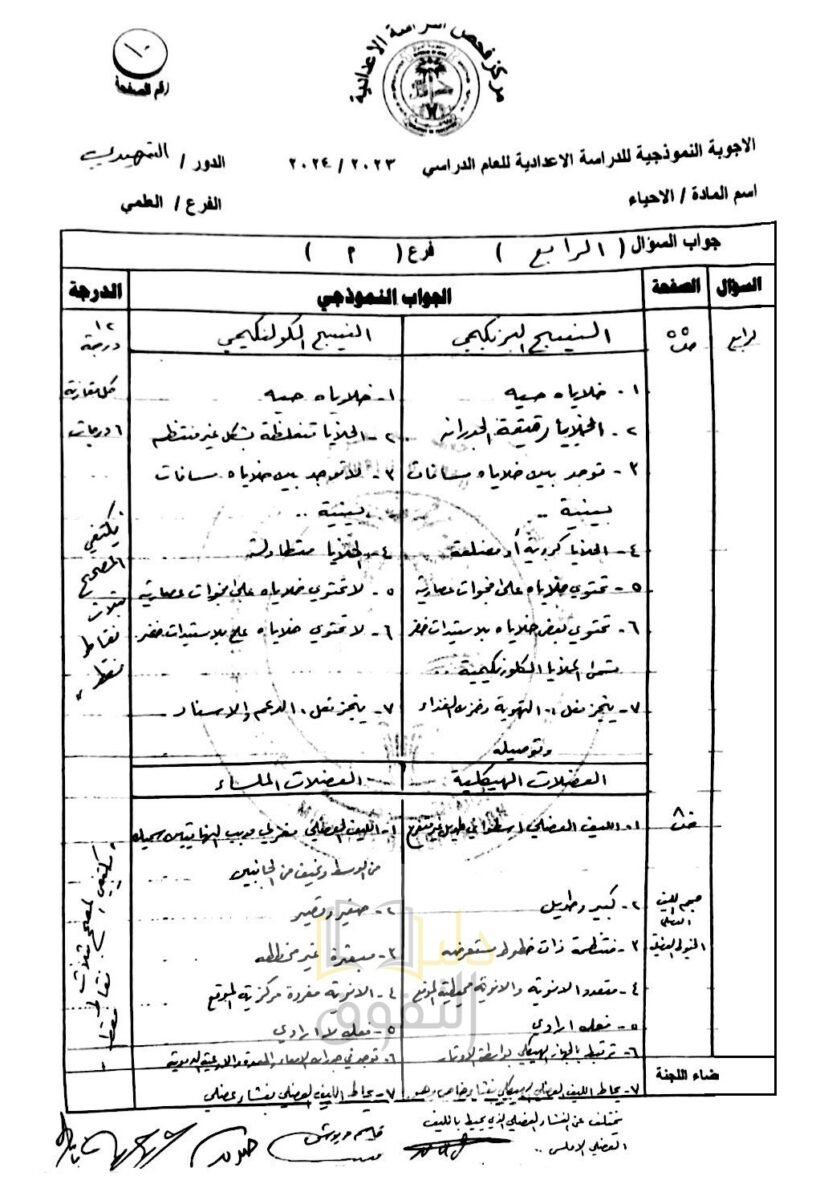 ١٠
رقم الصفحة
مركز فحص الدراسة الاعدادية
الاجوبة النموذجية للدراسة الاعدادية للعام الدراسي ٢٠٢٣ / ٢٠٢٤ الدور / التمهيدي
اسم المادة / الاحياء الفرع / العلمي
جواب السؤال ( الرابع ) فرع ( م )
السؤال الصفحة الجواب النموذجي الدرجة
الرابع ص٥٥ النسيج البرنكيمي النسيج الكولنكيمي ١٢ درجة
١- خلاياه حية ١- خلاياه حية كل مقارنة
٢- الخلايا رقيقة الجدران ٢- الخلايا متغلظة بشكل غير منتظم ٦ درجات
٣- توجد بين خلاياه مسافات ٣- لا توجد بين خلاياه مسافات
بينية .. بينية ..
٤- الخلايا كروية أو مضلعة ٤- الخلايا متطاولة
٥- تحتوي خلاياه على فجوات عصارية ٥- لا تحتوي خلاياه على فجوات عصارية
٦- تحتوي بعض خلاياه بلاستيدات خضر ٦- لا تحتوي خلاياه على بلاستيدات خضر
مثل الخلايا الكلورنكيمية ..
٧- ينجز فعل : التهوية وخزن الغذاء ٧- ينجز فعل : الدعم والاسناد
وتوصيله
يكتفي المصحح بثلاث نقاط فقط
العضلات الهيكلية العضلات الملساء
ص٨ ١- الليف العضلي اسطواني طويل غير متفرع ١- الليف العضلي مغزلي مدبب النهايتين سميك
من الوسط ونحيف من الجانبين
حجم الليف العضلي ٢- كبير وطويل ٢- صغير وقصير
٣- منتظمة ذات خطوط مستعرضة ٣- غير مخططة
٤- متعدد الانوية والانوية محيطية الموقع ٤- الانوية مفردة مركزية الموقع
٥- فعله ارادي ٥- فعله لا ارادي
٦- ترتبط بالجهاز الهيكلي بواسطة الاوتار ٦- توجد في جدران الامعاء والمعدة والاوعية الدموية
٧- يحاط الليف العضلي الهيكلي بغشاء خاص وهو ٧- يحاط الليف العضلي بغشاء عضلي
يختلف عن الغشاء العضلي الذي يحيط بالليف
العضلي الاملس ..
يكتفي المصحح بثلاث نقاط فقط
ضاء اللجنة
دليل
التفوق